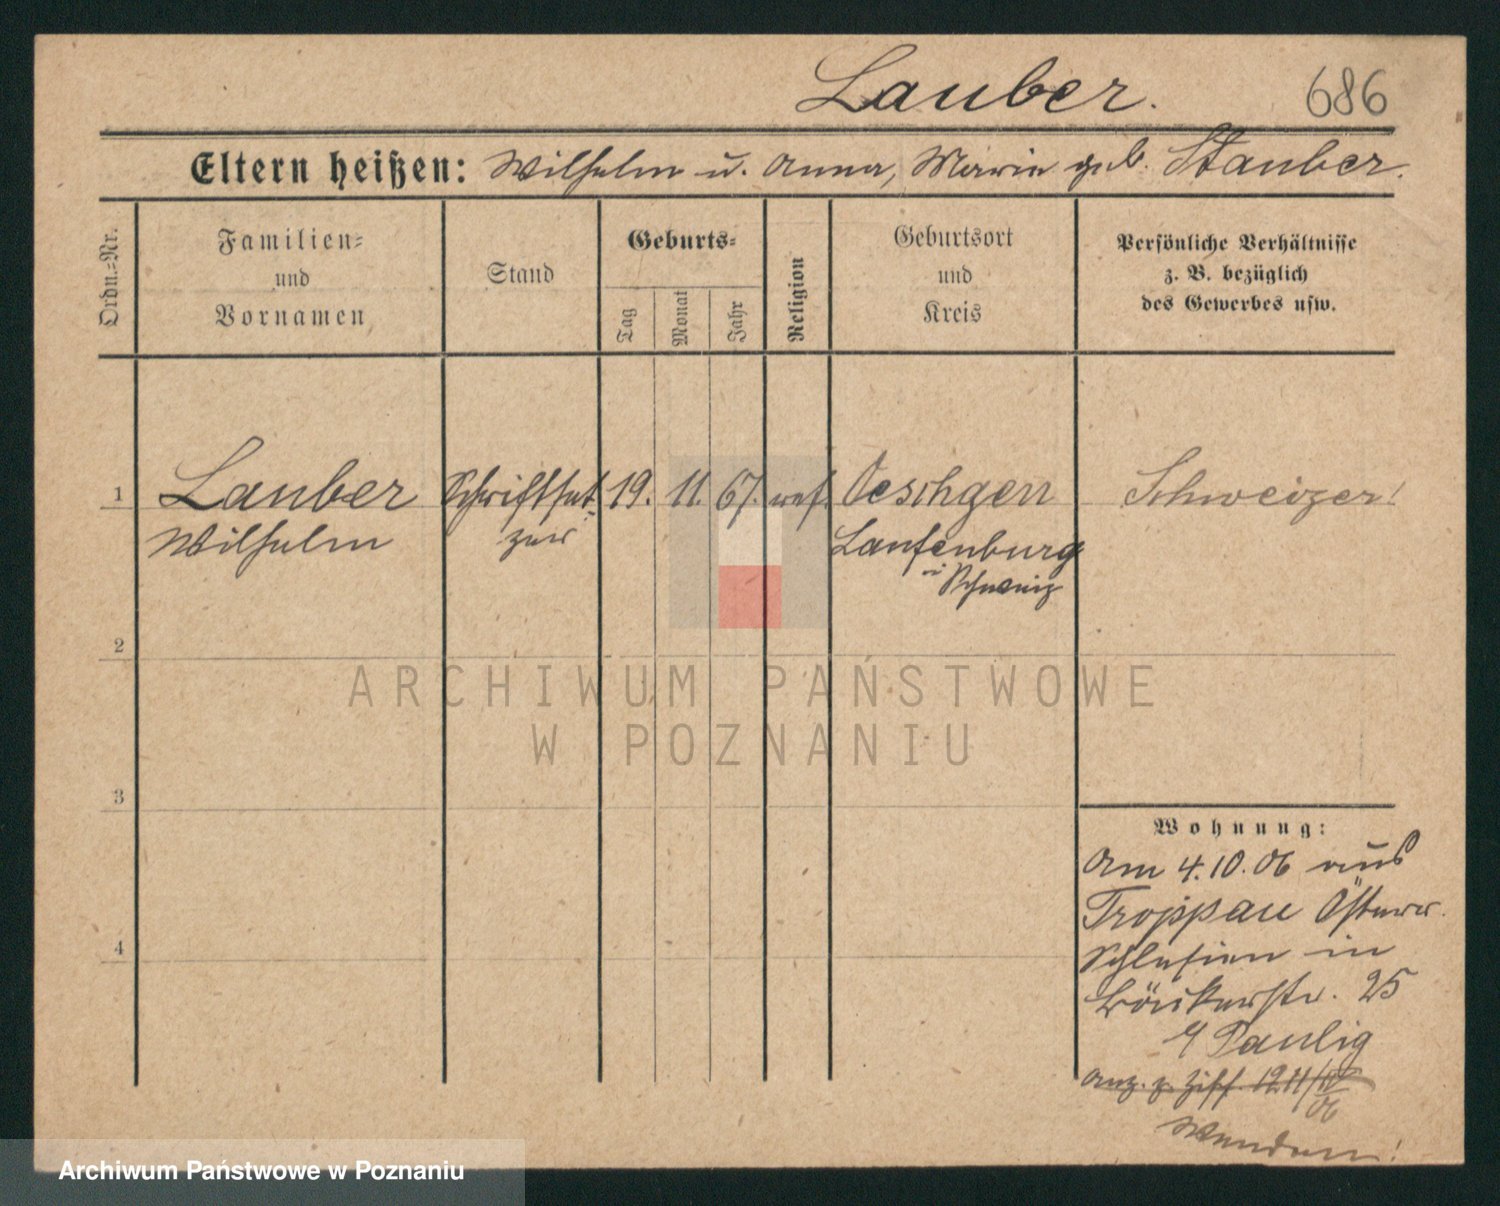 Lauber.
686
Eltern heißen: Wilhelm u. Anna, Marie geb. Stauber.
Ordn.=Nr.
Familien=
und
Vornamen
Stand
Geburts=
Tag
Monat
Jahr
Religion
Geburtsort
und
Kreis
Persönliche Verhältnisse
z. B. bezüglich
des Gewerbes usw.
1 Lauber Schriftset 19. 11. 67. ref. Oeschgen Schweizer!
Wilhelm zer Laufenburg
i Schweiz
2
ARCHIWUM PAŃSTWOWE
W POZNANIU
3
Wohnung:
Am 4.10.06 aus
Troppau Österr.
4
Schlesien in
Bäckerstr. 25
Paulig
Anz. z. Ziff. 1211/IV
06
Wenden!
Archiwum Państwowe w Poznaniu